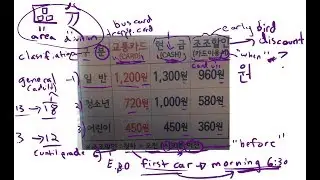 bus card
early bird
discount
"area"
division
clasification
구분 교통카드 현금 조조할인
(CASH)
"when"
general
(adult)
1) 일반 1,200원 1,300원 960원
13 → 18
2) 청소년 720원 1,000원 580원
3 → 12
3) 어린이 450원 450원 360원
(until grade 6)
"before"
6:30 first car → morning 6:30